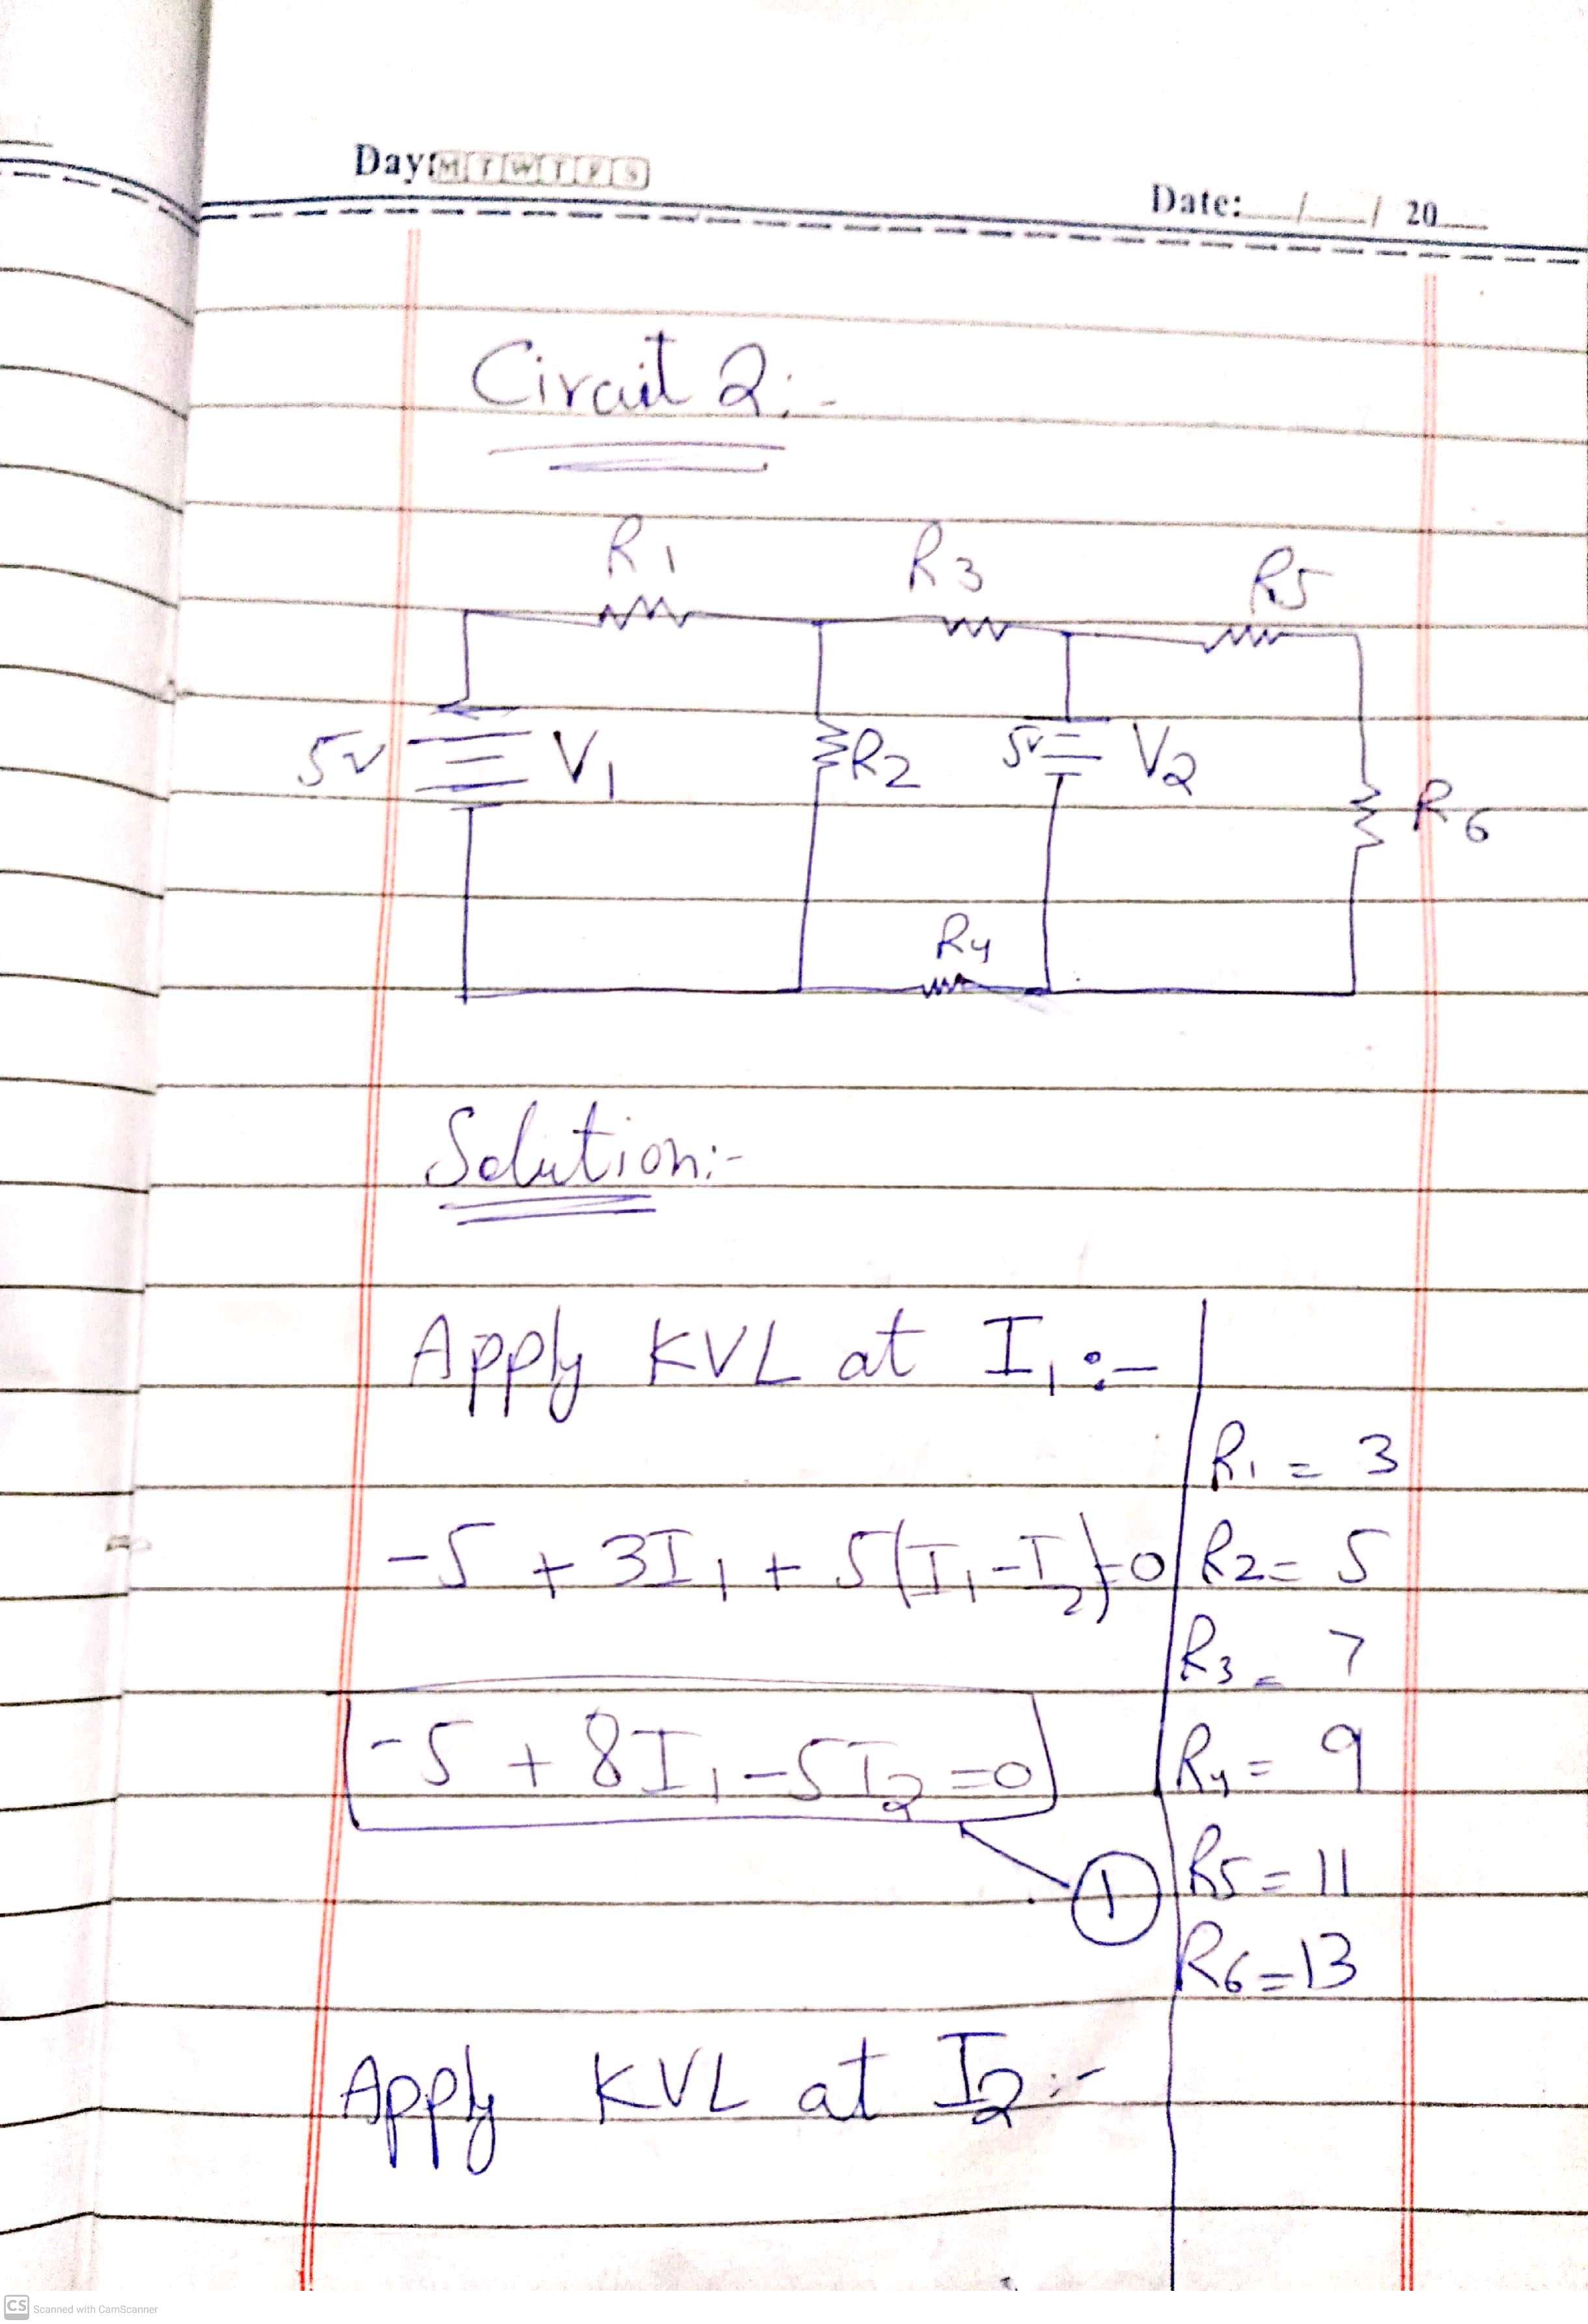 Day: M T W T F S
Date: __/__/ 20__
Circuit 2:-
R1 R3 R5
5v V1 R2 5v V2 R6
R4
Solution:-
Apply KVL at I1 :-
R1 = 3
-5 + 3I1 + 5(I1-I2)=0 R2= 5
R3 = 7
-5 + 8I1 -5I2 =0 R4 = 9
1 R5 = 11
R6 =13
Apply KVL at I2 :-
CS Scanned with CamScanner